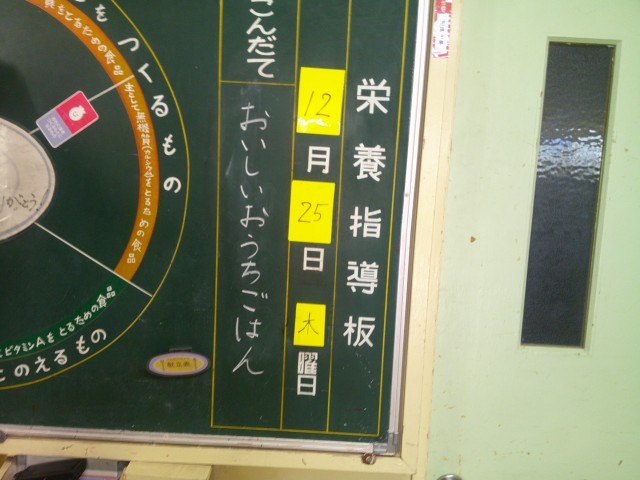 栄養指導板
12月25日 木曜日
こんだて
おいしいおうちごはん
をつくるもの
をとるための食品
主として無機質(カルシウム)をとるための食品
ビタミンAをとるための食品
とのえるもの
りがとう